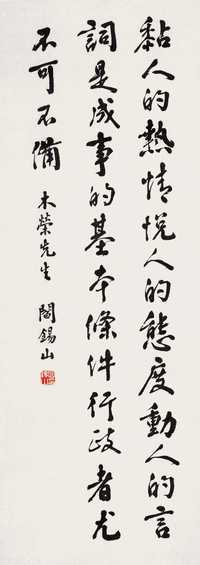 黏人的熱情悅人的態度動人的言
詞是成事的基本條件行政者尤
不可不備
木榮先生
閻錫山